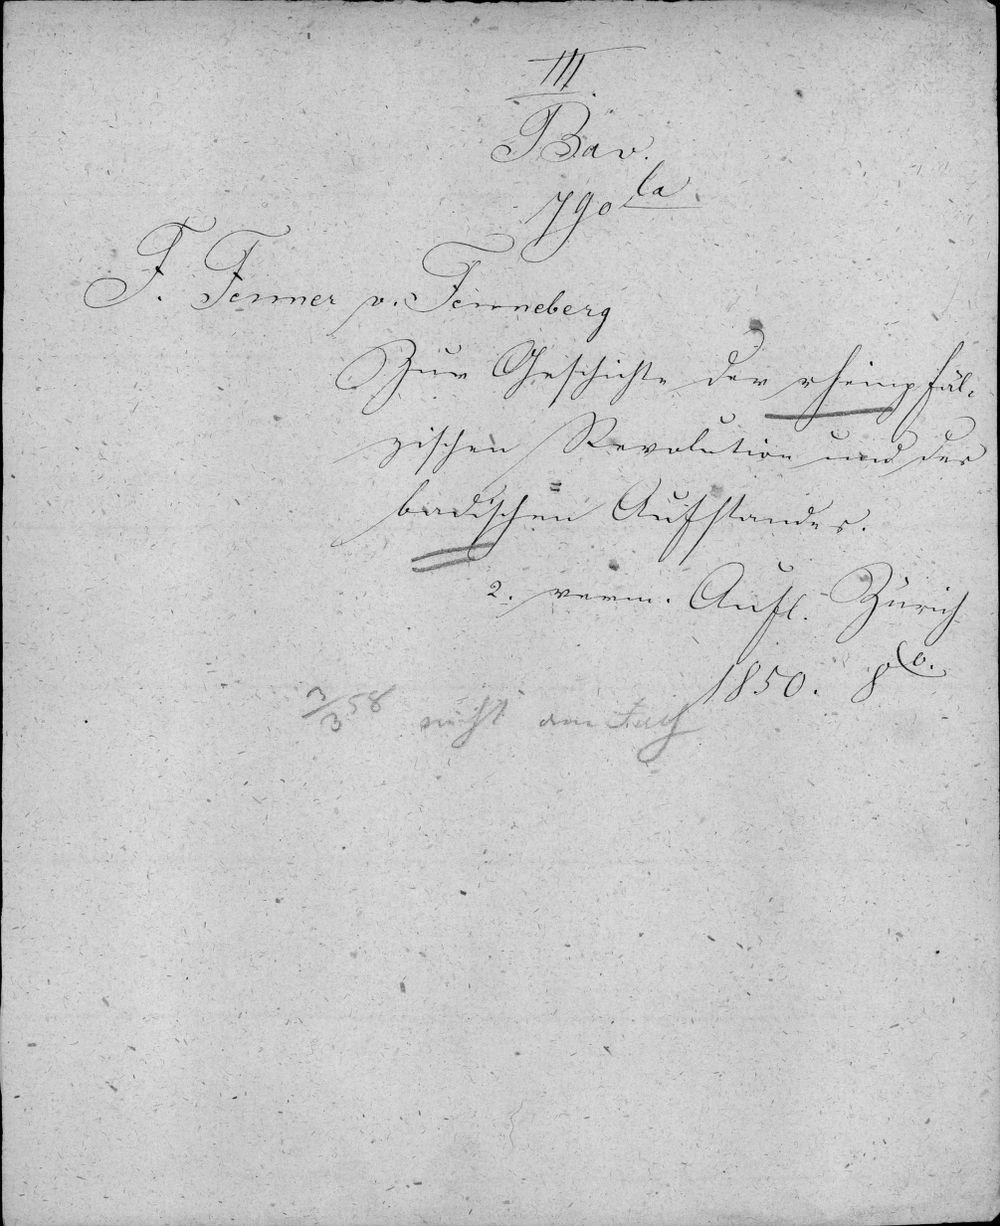 III
Bav.
790 la
F. Fenner v. Fenneberg
Zur Geschichte der rheinpfäl-
zischen Revolution und des
badischen Aufstandes.
2. verm. Aufl. Zürich
1850. 8o.
7/3 58 nicht am Fach